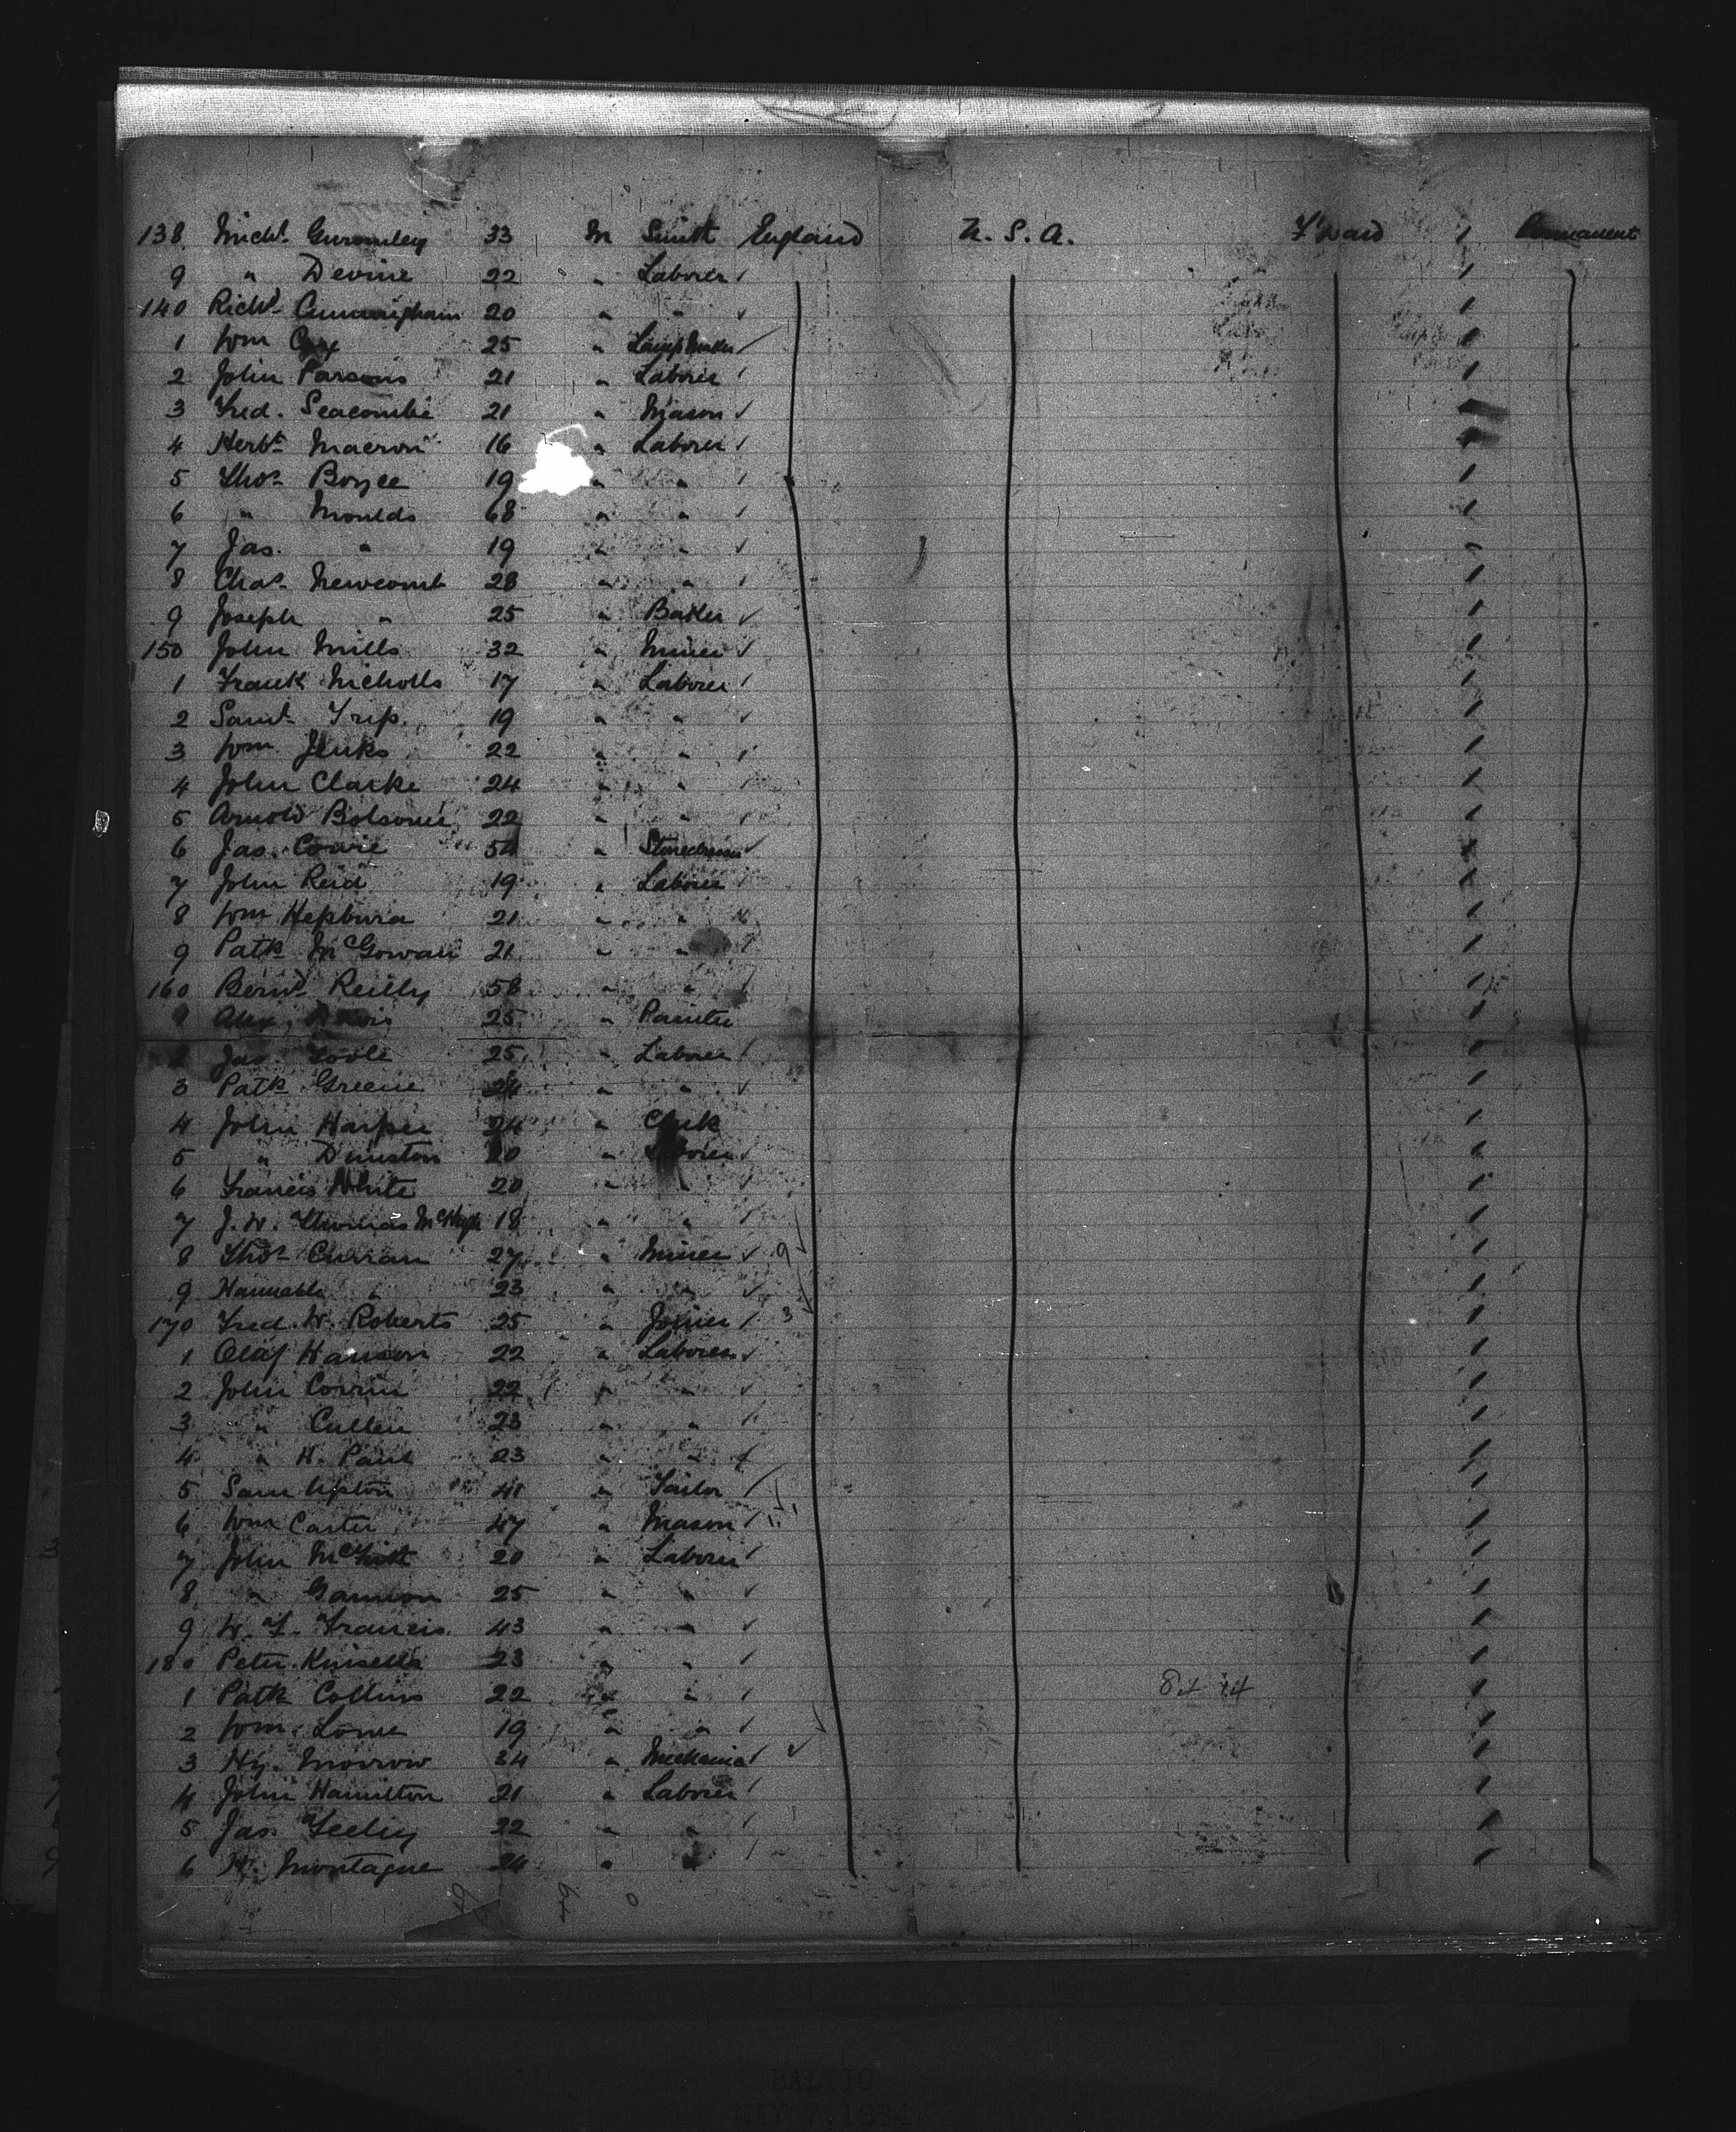 138 Michl. Gurmley 33 M Smith England U. S. A. F'Ward 1 Permanent
9 " Devine 22 " Laborer
140 Richd. Cunningham 20 " "
1 Wm 25 "
2 John Parsons 21 " Laborer
3 Fred. Seacombe 21 " Mason
4 Herbt. 16 " Laborer
5 Thos. Boyce 19 " "
6 " Moulds 68 " "
7 Jas. " 19 " "
8 Chas. Newcomb 28 " "
9 Joseph " 25 " Baker
150 John Mills 32 " Miner
1 Frank Nicholls 17 " Laborer
2 Saml. Trip. 19 " "
3 Wm. Jenks 22 " "
4 John Clarke 24 " "
5 Arnold 22 " "
6 Jas. Cowie "
7 John Reid 19 " Laborer
8 Wm Hepburn 21 " "
9 Patk McGowan 21 " "
160 Bernd. Reilly 58 " "
25 " Painter
2 Jas. Toole 25 " Laborer
3 Patk Greene 24 " "
4 John Harper 24 " Clerk
5 " 20 " Laborer
6 Francis White 20 " "
7 J. W. Thomas McHugh 18 " "
8 Thos. Curran 27 " Miner 9
9 Hannah " 23 " "
170 Fred. W. Roberts 25 " Joiner 3
1 Olaf Hanson 22 " Laborer
2 John Corrin 22 " "
3 " Cullen 23 " "
4 " H. Paul 23 " "
5 Sam Upton 41 " Tailor
6 Wm Carter 47 " Mason
7 John 20 " Laborer
8 " Gannon 25 " "
9 W. F. Francis 43 " "
180 Peter Kinsella 23 " "
1 Patk Collins 22 " "
2 Wm. Lowe 19 " "
3 Hy. Morrow 34 " Mechanic
4 John Hamilton 21 " Laborer
5 Jas. Feeley 22 " "
6 H. Montague 24 " "
BALTIC
MAY 7, 1884